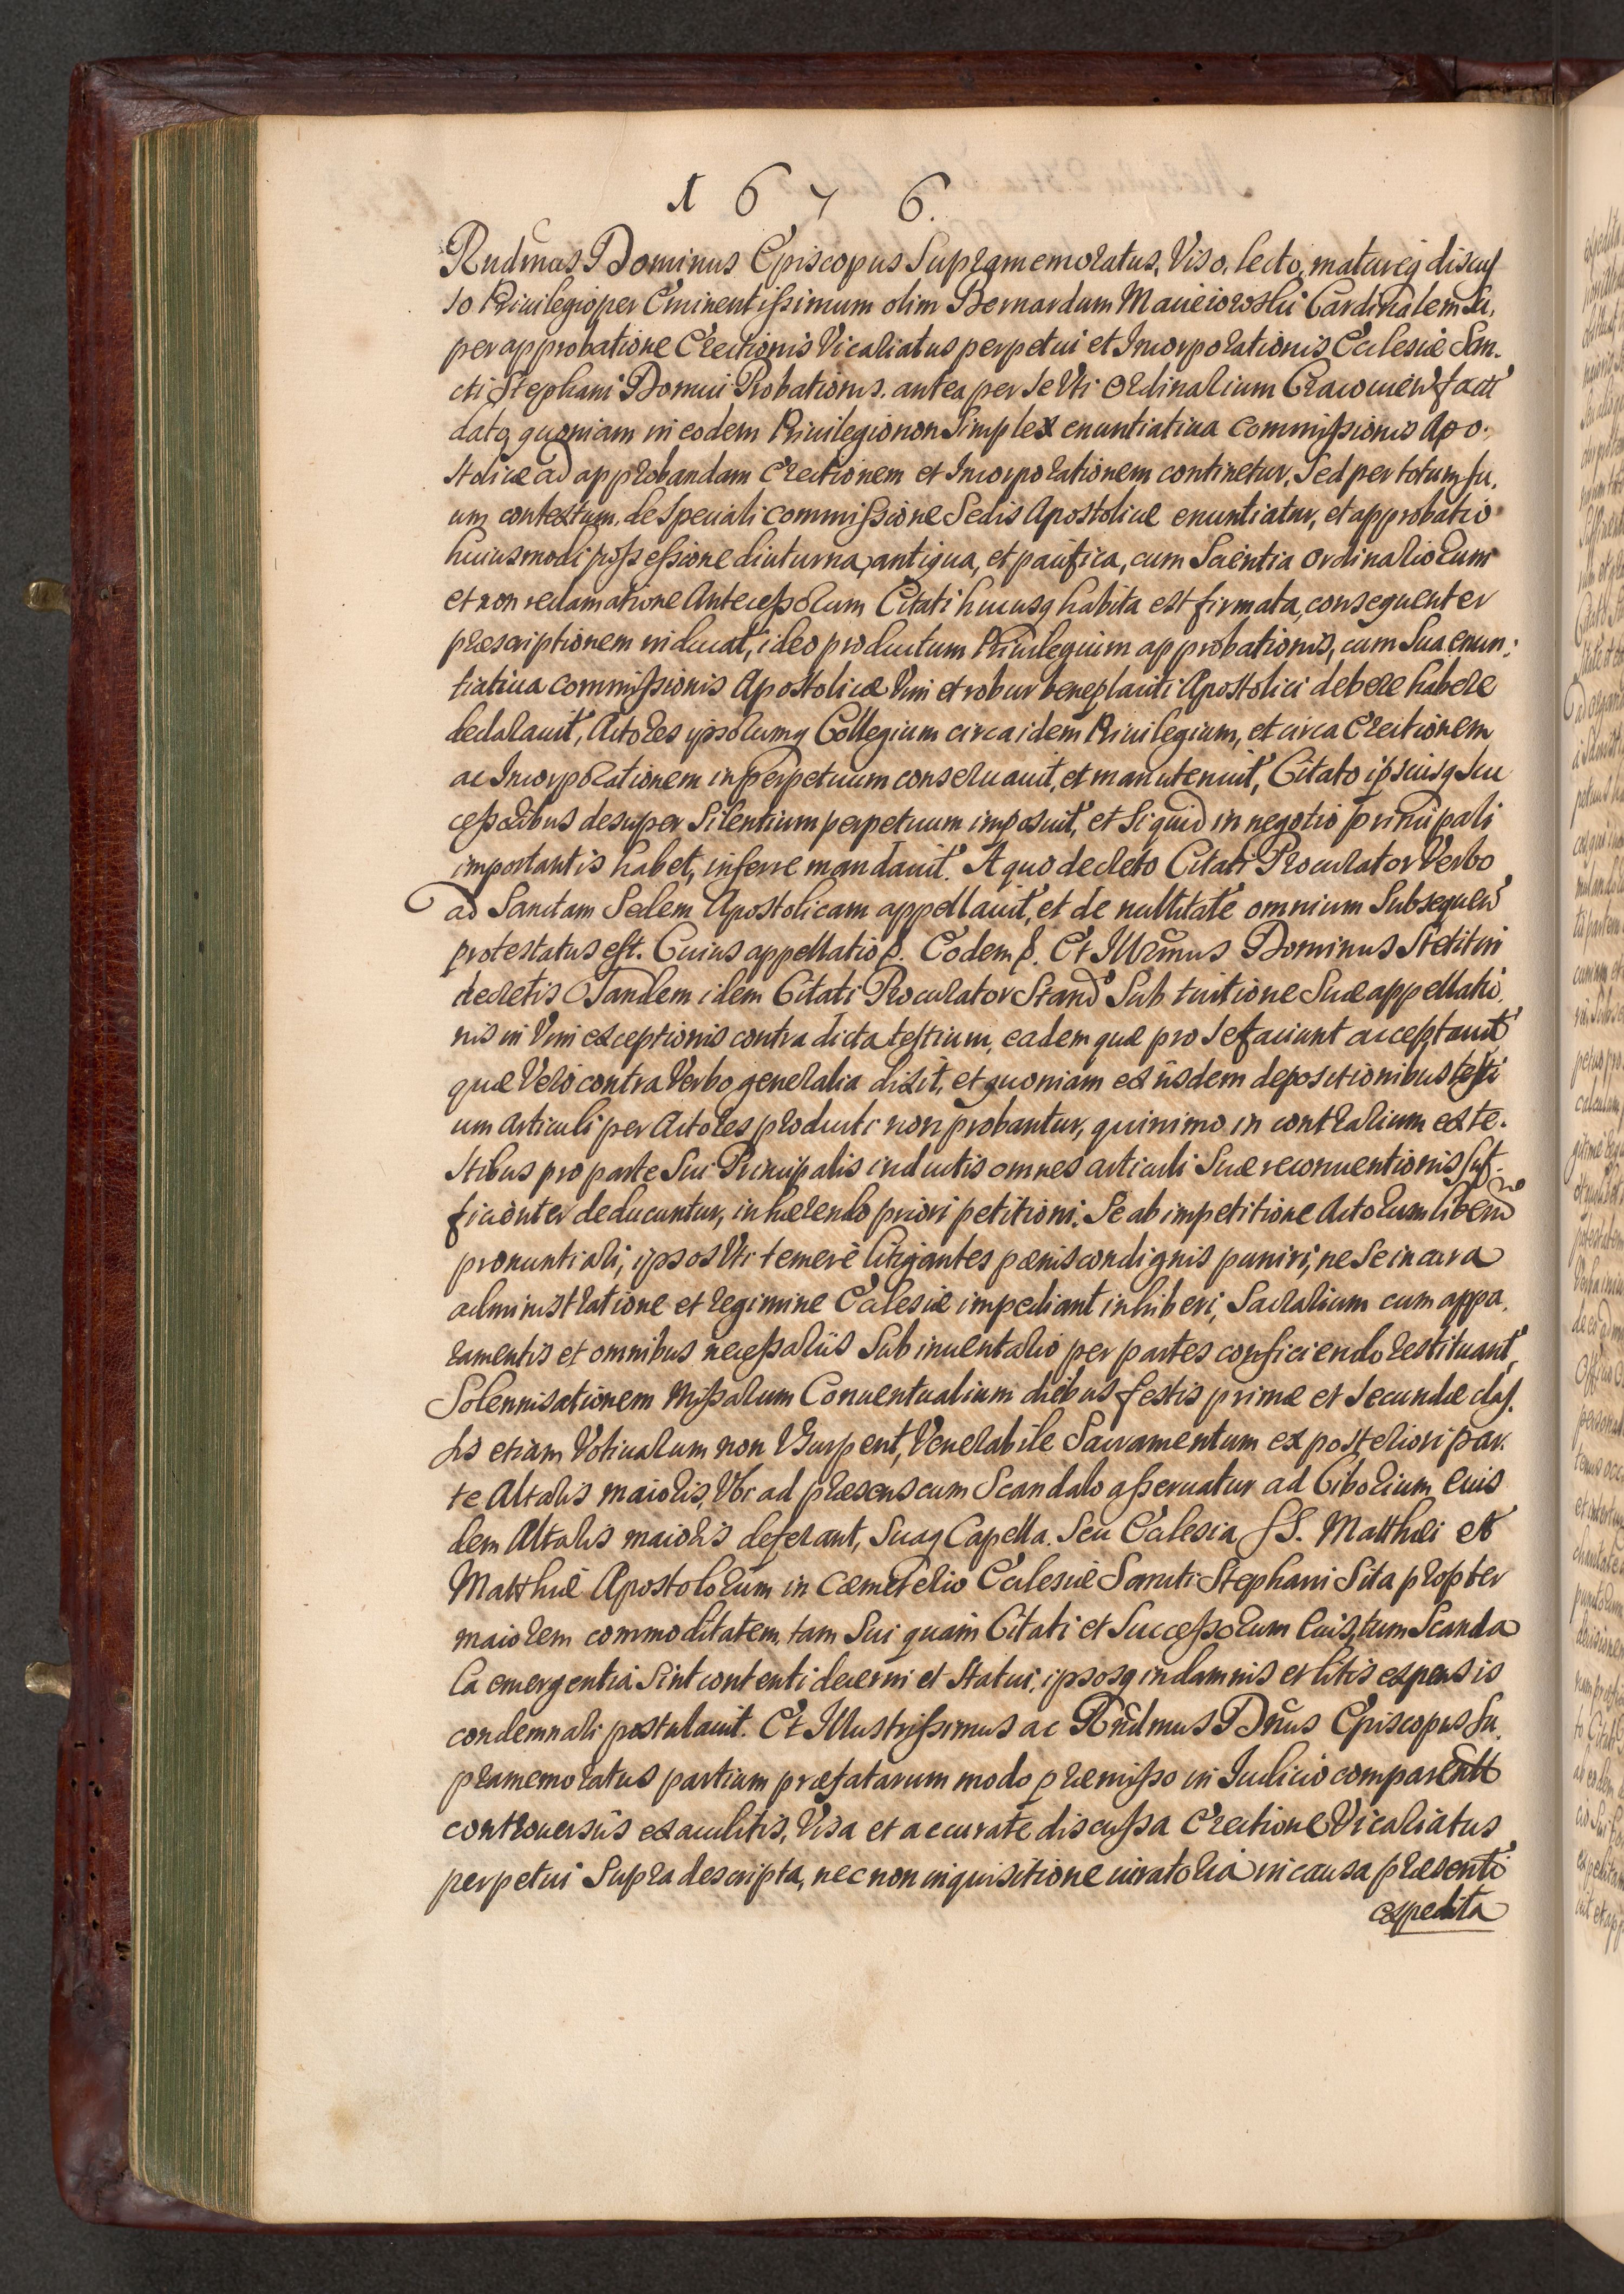 1676.
Rndmus Dominus Episcopus Supramemoratus, Viso, lecto, matureq discus
so Priuilegio per Eminentissimum olim Bernardum Macieiowski Cardinalem Su,
per approbatione Erectionis Vicariatus perpetui et Incorporationis Ecclesiæ San.
cti Stephani Domui Probationis. antea per se Vti Ordinarium Cracouien fact
dato, quoniam in eodem Priuilegio non Simplex enuntiatiua commissionis Apo.
stolicæ ad approbandam Erectionem et Incorporationem continetur, Sed per totum su,
um contextum. de Speciali commissione Sedis Apostolicæ enuntiatur, et approbatio
huiusmodi possessione diuturna, antiqua, et pacifica, cum Scientia Ordinariorum
et non reclamatione Antecessorum Citati hucusq habita est firmata, consequenter
præscriptionem inducat, ideo productum Priuilegium approbationis, cum Sua enun:
tiatiua commissionis Apostolicæ Vim et robur beneplaciti Apostolici debere habere
declarauit, Actores ipsorumq Collegium circa idem Priuilegium, et circa Erectionem
ac Incorporationem in perpetuum conseruauit, et manutenuit, Citato ipsiusq Suc
cessoribus desuper Silentium perpetuum imposuit, et Si quid in negotio principali
importantis habet, inferre mandauit. A quo decreto Citati Procurator Verbo
ad Sanctam Sedem Apostolicam appellauit, et de nullitate omnium Subsequen
protestatus est. Cuius appellatio p. Eodem p. Et Illrmus Dominus Stetit in
decretis Tandem idem Citati Procurator Stand Sub tuitione Suæ appellatio,
nis in Vim exceptionis contra dicta testium, eadem quæ pro Se faciunt acceptauit
quæ Vero contra Verbo generalia dixit, et quoniam ex iisdem depositionibus testi
um Articuli per Actores producti non probantur, quinimo in contrarium ex te.
stibus pro parte Sui Principalis inductis omnes articuli Suæ reconuentionis suf.
ficienter deducuntur, inhærendo priori petitioni. Se ab impetitione Actorum liberu
pronuntiari, ipsos Vti temerè litigantes pœnis condignis puniri, ne Se in cura
administratione et regimine Ecclesiæ impediant inhiberi, Sacrarium cum appa,
ramentis et omnibus necessariis Sub inuentario per partes conficiendo restituant,
Solennisationem Missarum Conuentualium diebus festis primæ et Secundæ clas.
sis etiam Votiuarum non Vsurpent, Venerabile Sacramentum ex posteriori par.
te Altaris maioris, Vbi ad præsens cum Scandalo asseruatur ad Ciborium eius
dem Altaris maioris deferant, Suaq Capella. Seu Ecclesia SS. Matthæi et
Matthiæ Apostolorum in Cæmeterio Ecclesiæ Sancti Stephani Sita propter
maiorem commoditatem, tam Sui quam Citati et Successorum eius, tum Scanda
la emergentia Sint contenti decerni et Statui, ipsosq in damnis et litis expensis
condemnari postulauit. Et Illustrissimus ac Rndmus Dnus Episcopus Su,
pramemoratus partium præfatarum modo præmisso in Iudicio comparentt
controuersiis exauditis, Visa et accurate discussa Erectione Vicariatus
perpetui Supra descripta, nec non inquisitione iuratoria in causa præsenti
expedita